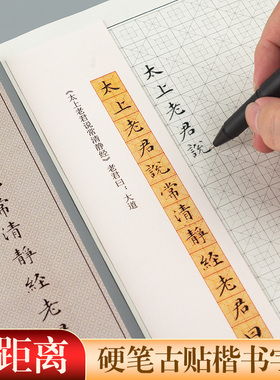 太上老君说常清静经
《太上老君说常清静经》老君曰:大道
太上老君說常清靜經老君曰
太上老君說
常清靜經老君
距离
硬笔古贴楷书字